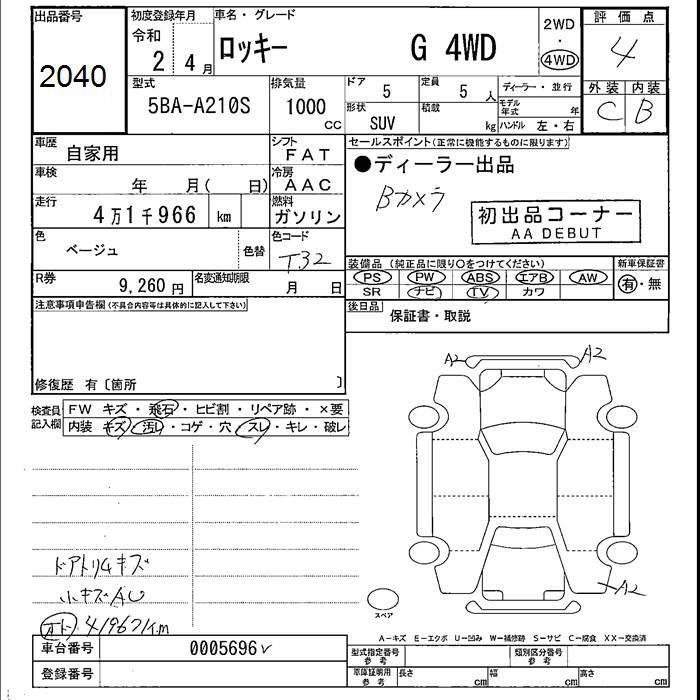 出品番号
2040
初度登録年月
令和
2 4月
車名・グレード
ロッキー G 4WD
2WD
・
4WD
評価点
4
外装 内装
C B
型式
5BA-A210S
排気量
1000
cc
ドア
5
定員
5 人
形状
SUV
積載
kg
ディーラー・並行
モデル年式 年
ハンドル 左・右
車歴
自家用
シフト
FAT
車検
年 月( 日)
冷房
AAC
走行
4万1千966 km
燃料
ガソリン
色
ベージュ
色替
色コード
T32
R券
9,260 円
名変通知期限
月 日
セールスポイント(正常に機能するものに限ります)
●ディーラー出品
Bカメラ
初出品コーナー
AA DEBUT
装備品 (純正品に限り〇をつけてください)
PS PW ABS エアB AW
SR ナビ TV カワ
新車保証書
有・無
後日品
保証書・取説
注意事項申告欄(不具合内容等は具体的に記入して下さい)
修復歴 有〔箇所 〕
検査員記入欄
FW キズ・飛石・ヒビ割・リペア跡・×要
内装 キズ・汚レ・コゲ・穴・スレ・キレ・破レ
A2 A2
A2
ドアトリムキズ
小キズAU
オト) 41967km
スペア
A―キズ E―エクボ U―凹み W―補修跡 S―サビ C―腐食 XX―交換済
車台番号
0005696
登録番号
型式指定番号
参考
類別区分番号
参考
車庫証明用
参考
長さ cm
幅 cm
高さ cm